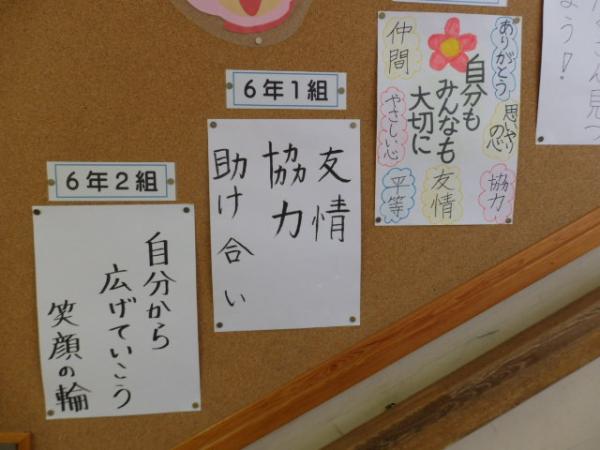 6年2組
自分から
広げていこう
笑顔の輪
6年1組
友情
協力
助け合い
自分も
みんなも
大切に
ありがとう
思いやりの心
協力
仲間
やさしい心
平等
友情